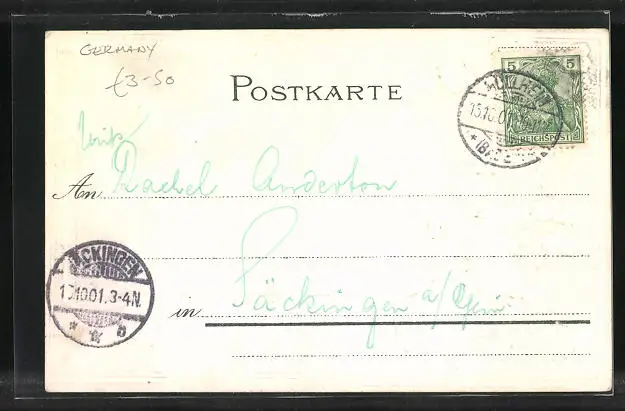 GERMANY
£3-50
POSTKARTE
5 5
REICHSPOST
15.10.01
An Rachel Anderton
SÄCKINGEN
15.10.01.3-4N.
* b
in Säckingen a/